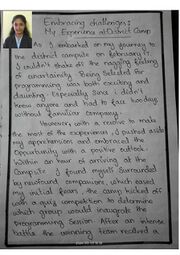 Embracing challenges:
My Experience at District Camp
As I embarked on my journey to
the district campsite on February 17,
I couldn't shake off the nagging feeling
of uncertainity. Being Selected for
programming was both exciting and
daunting. Especially Since I didn't
know anyone and had to face two days
without familiar company.
However, with a resolve to make
the most of the experience, I pushed aside
my apprehensions and embraced the
opportunity with a positive outlook.
Within an hour of arriving at the
Campsite I found myself Surrounded
by newfound companions, which eased
my initial fears. The camp kicked off
with a quiz competition to determine
which group would inaugurate the
programming Session. After an intense
battle the winning team received a